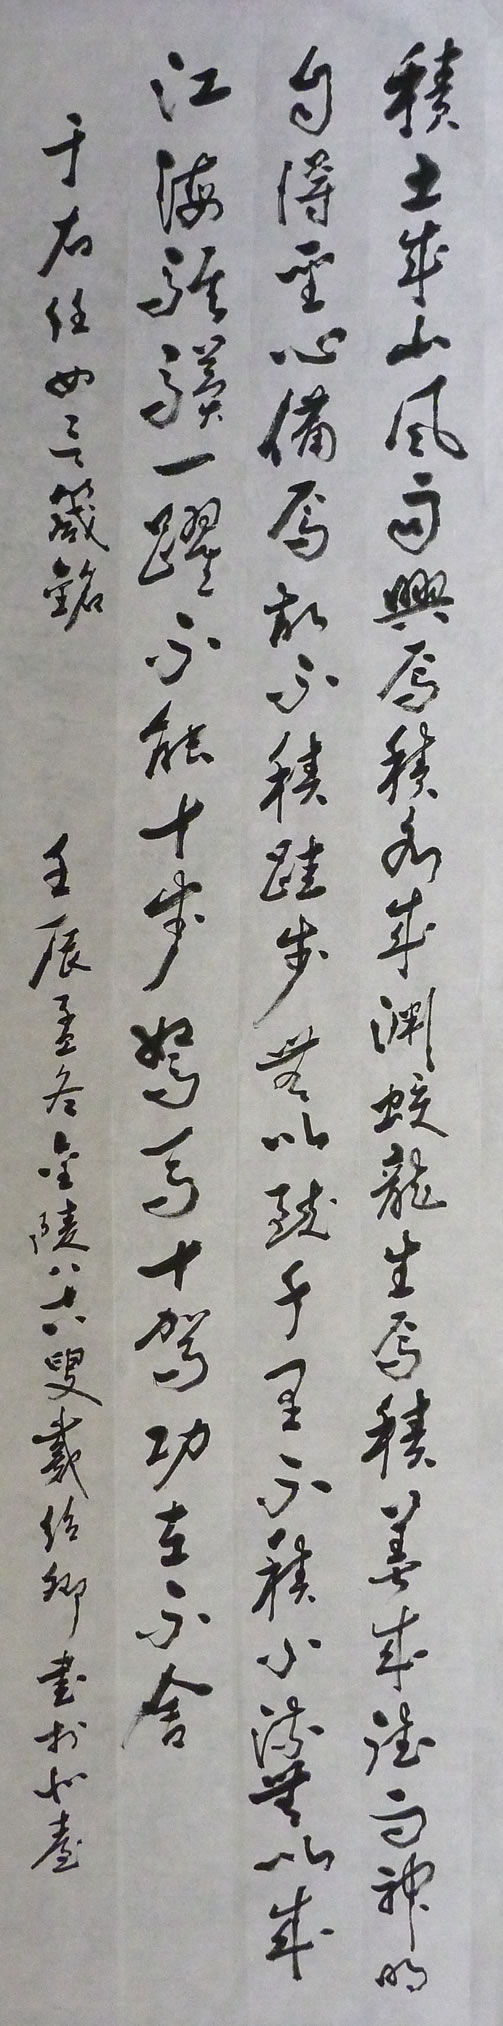 積土成山風雨興焉積水成淵蛟龍生焉積善成德而神明
自得聖心備焉故不積跬步無以致千里不積小流無以成
江海騏驥一躍不能十步駑馬十駕功在不舍
于右任女士箴銘
壬辰孟冬金陵八十六叟戴紹卿書於北臺